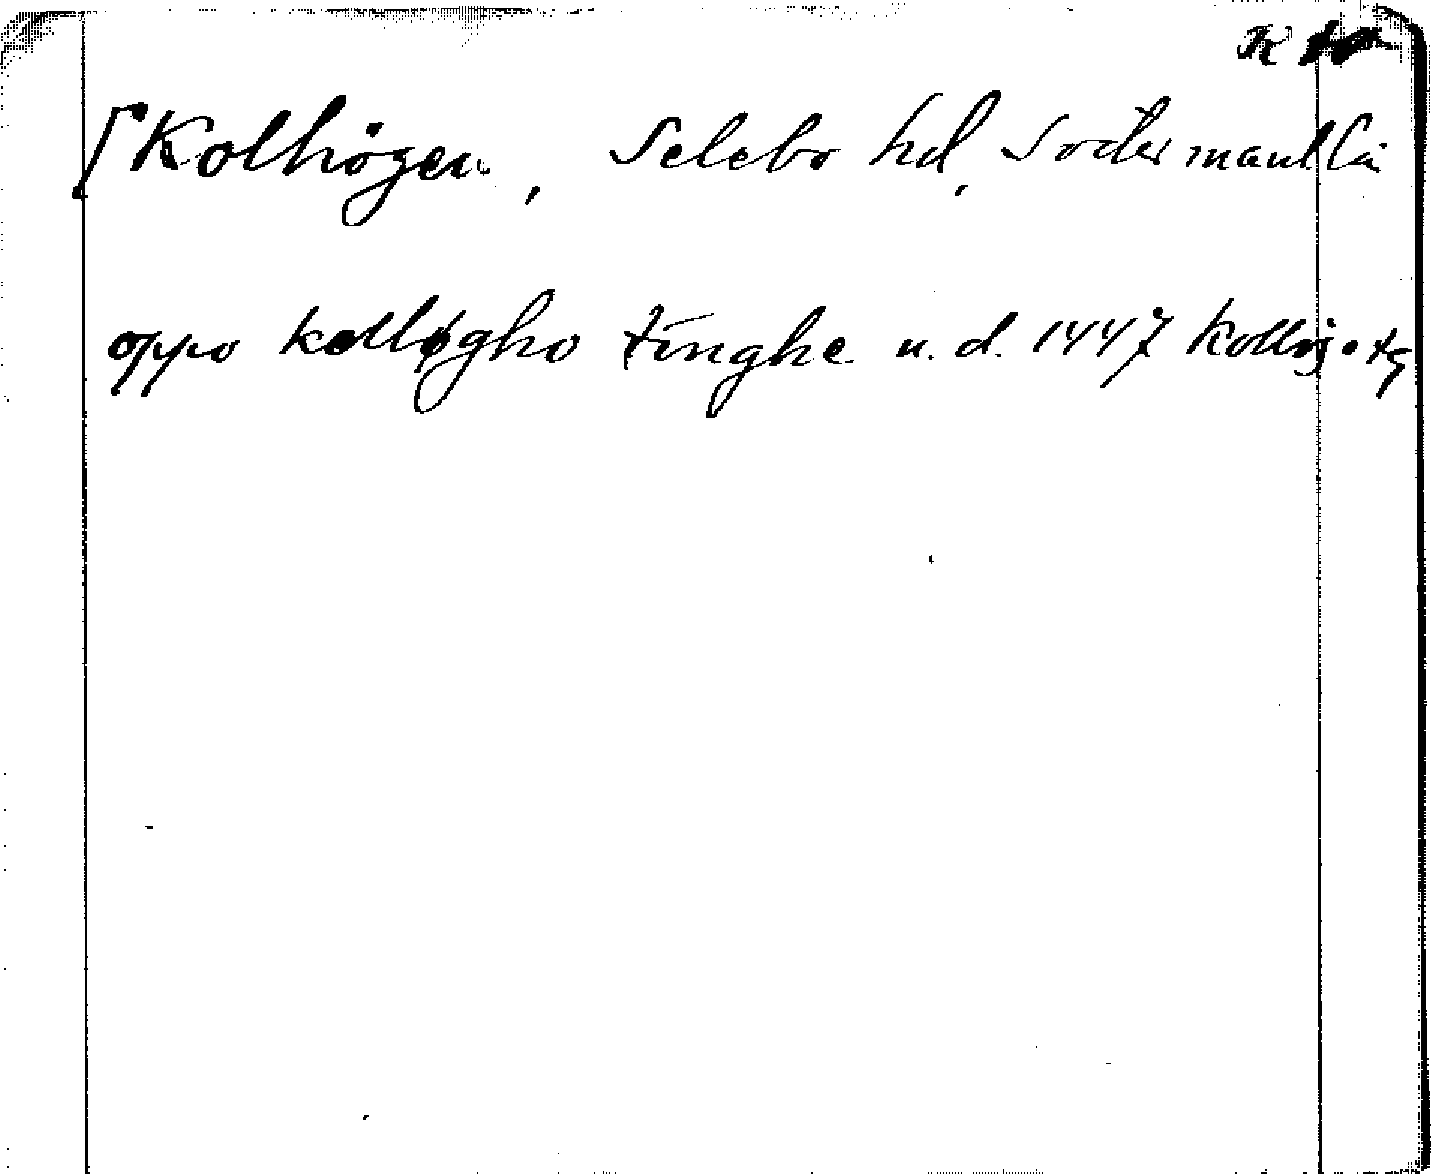 K
[Kolhögen, Selebo hd, Södermanl lä
oppo kolløgho tinghe u. d. 1447